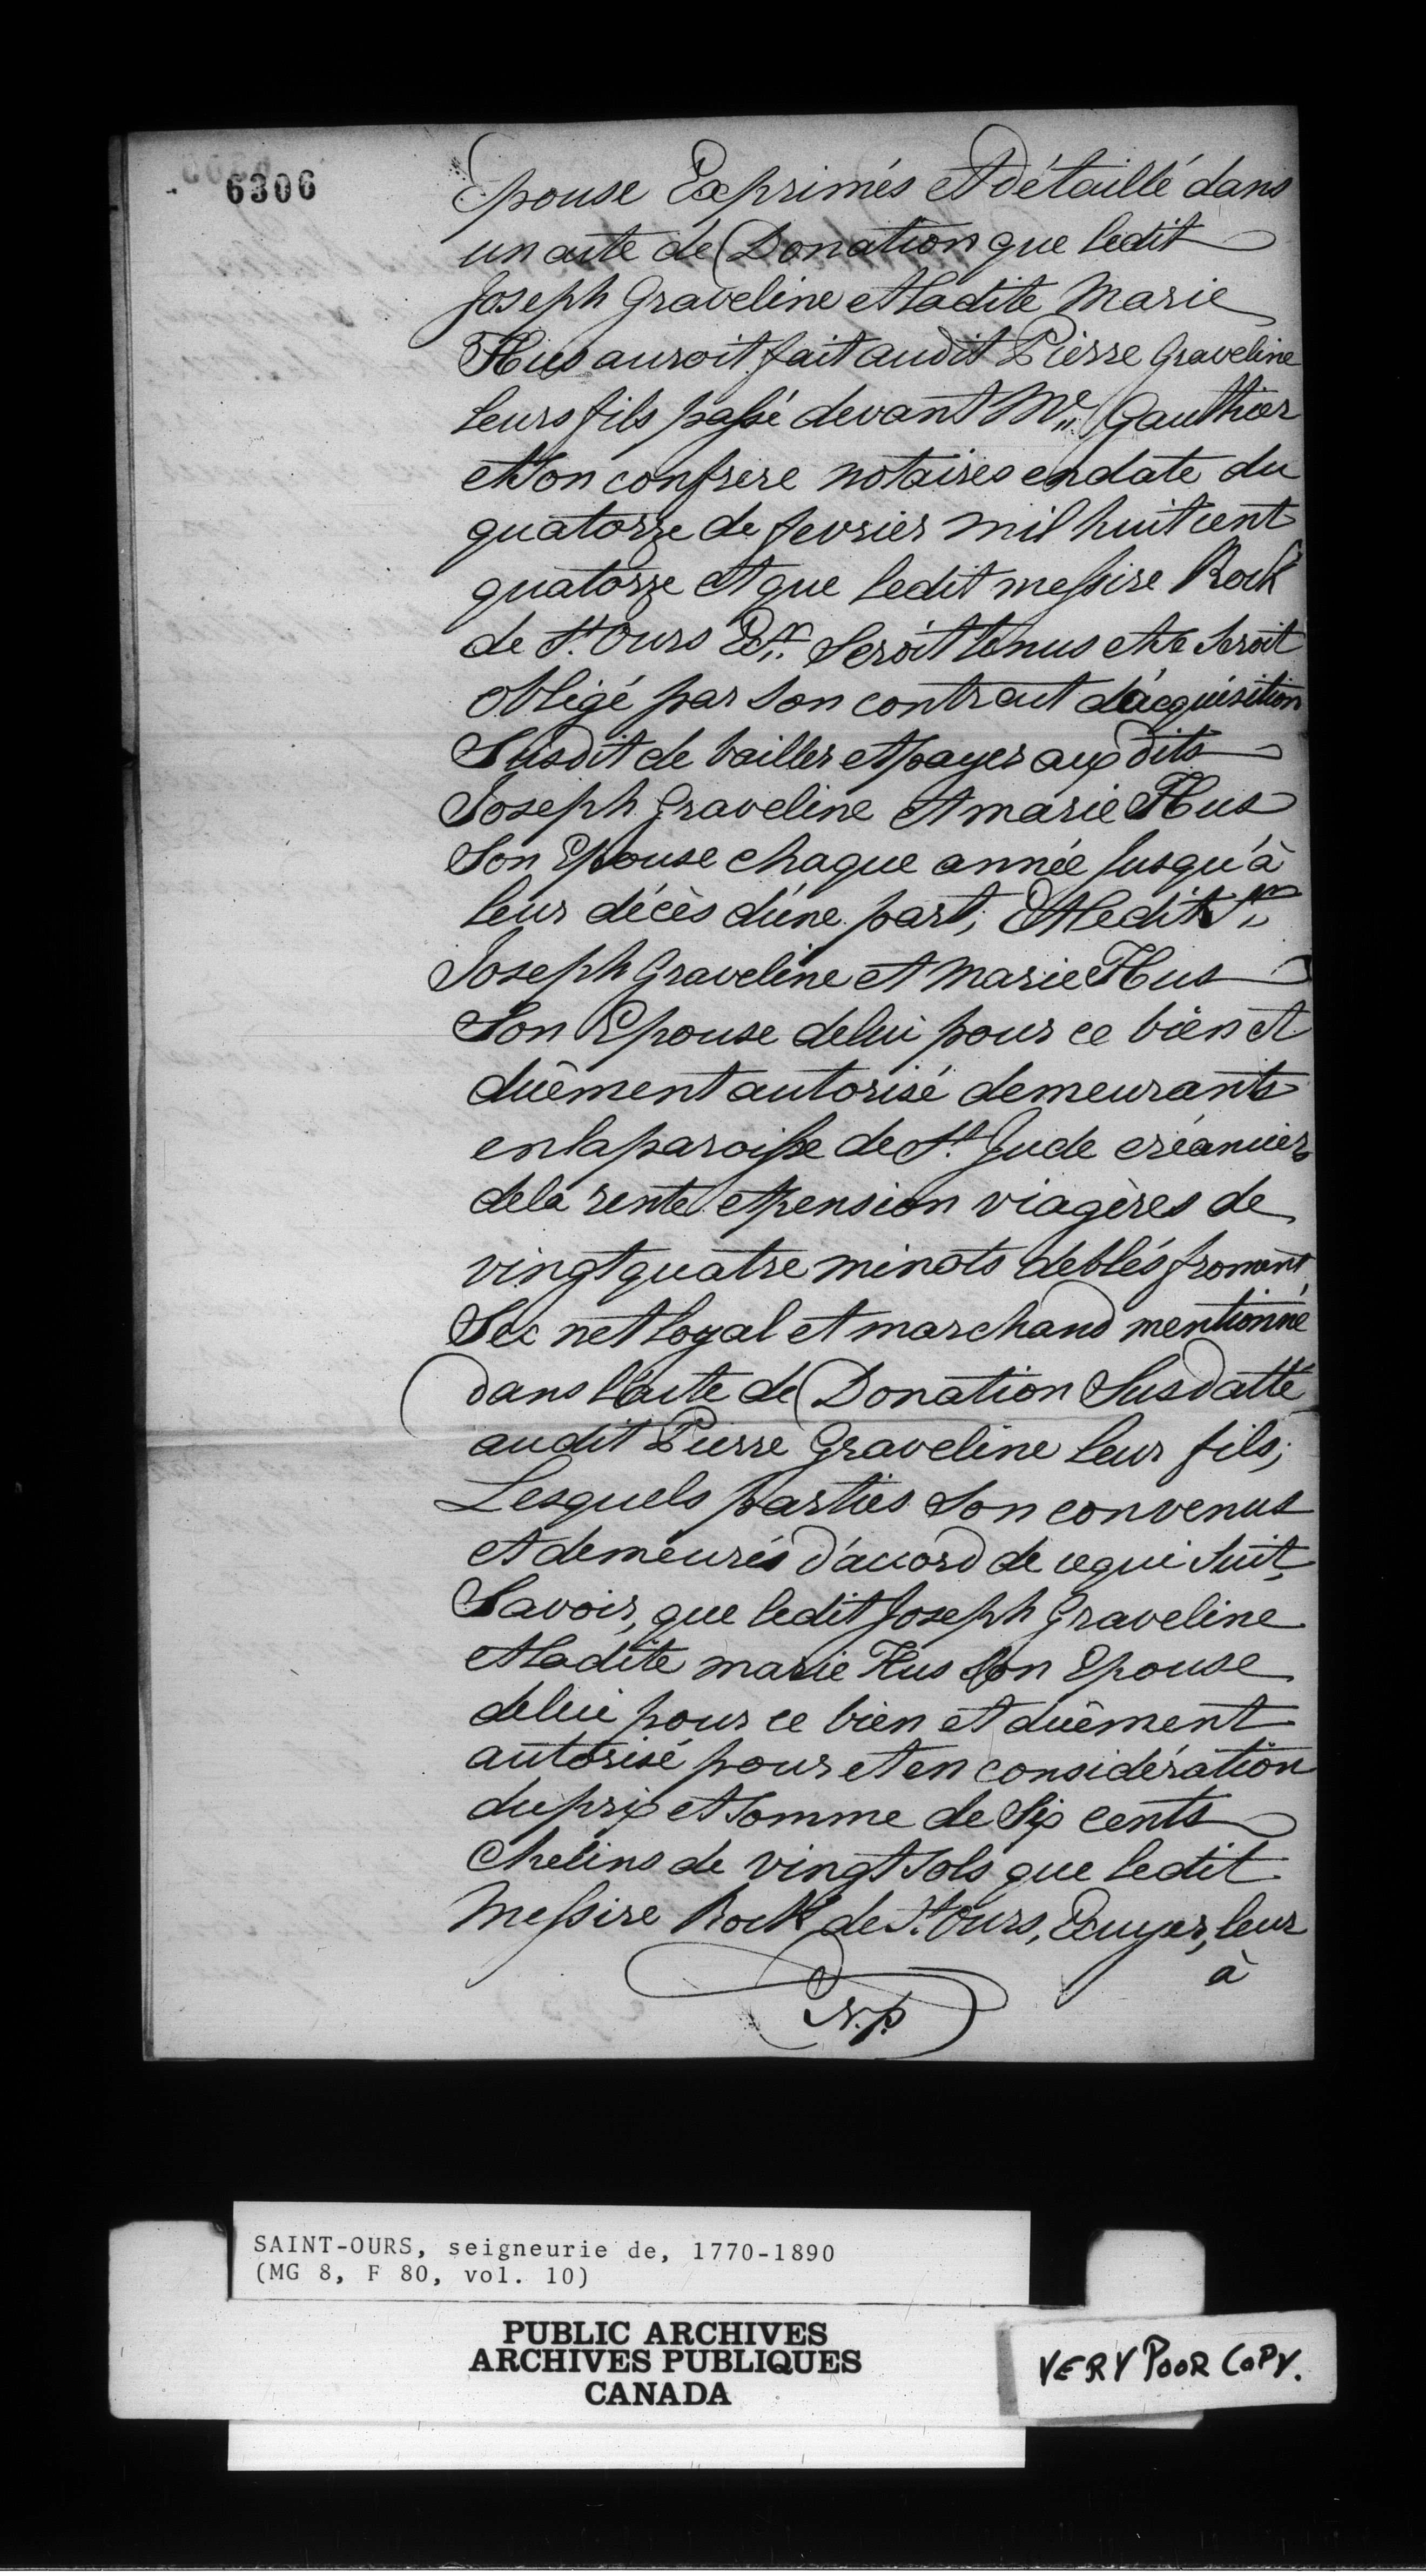 6306
Epouse Exprimés et détaillé dans
un acte de Donation que ledit
Joseph Graveline et ladite Marie
Hus auroit fait audit Pierre Graveline
leurs fils passé devant Me. Gauthier
et son confrere notaires en date du
quatorze de fevrier mil huit cent
quatorze et que ledit messire Rock
de St. Ours Ecr. Seroit tenus et se seroit
obligé par son contract d'acquisition
Susdit de bailler et payer aux dits
Joseph Graveline et marie Hus
Son Epouse chaque année Jusqu'à
leur décès d'une part, Et ledit Sr.
Joseph Graveline et Marie Hus
Son Epouse de lui pour ce bien et
duêment autorisé demeurants
en la paroisse de St. Jude créancier
de la rente et pension viagères de
vingt quatre minots de blés froment
Sec net loyal et marchand mentionné
dans l'acte de Donation Susdatté
audit Pierre Graveline leur fils;
Lesquels parties Son convenus
et demeurés d'accord de ce qui Suit,
Savoir, que ledit Joseph Graveline
et ladite marie Hus son Epouse
de lui pour ce bien et duêment
autorisé pour et en considération
du prix et somme de Six cents
Chelins de vingt Sols que ledit
Messire Rock de St. Ours, Ecuyer, leur
à
N.p.
SAINT-OURS, seigneurie de, 1770-1890
(MG 8, F 80, vol. 10)
PUBLIC ARCHIVES
ARCHIVES PUBLIQUES
CANADA
VERY POOR COPY.